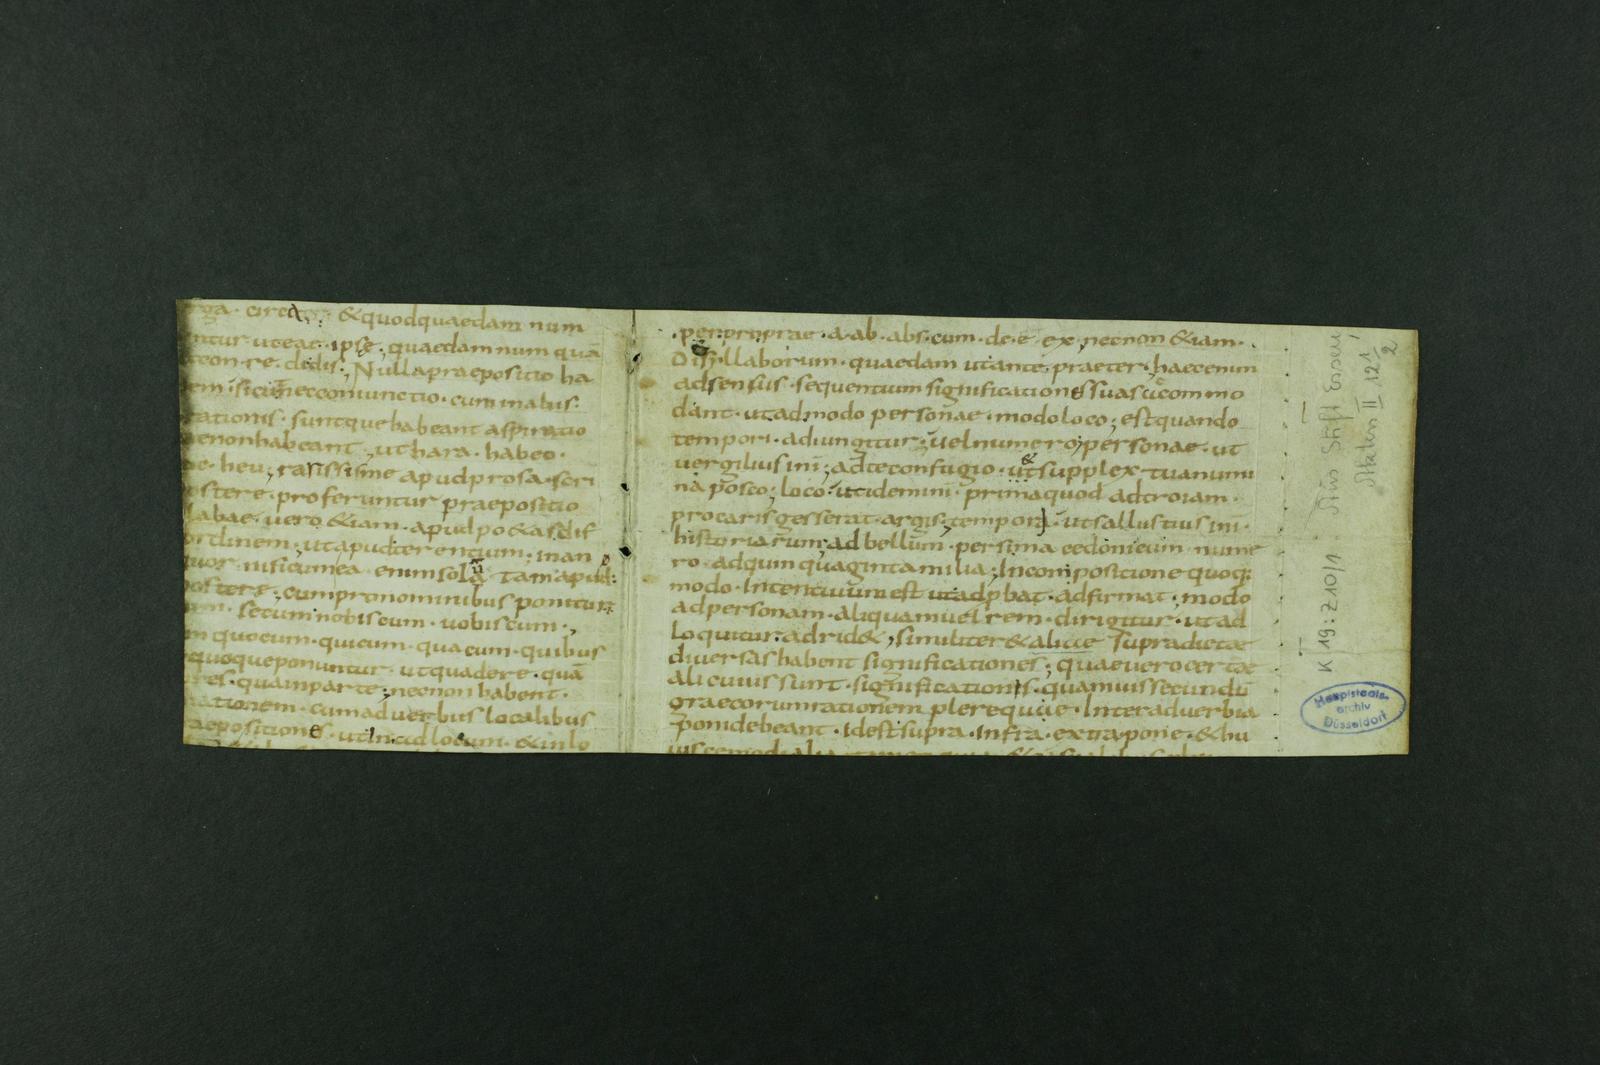 rga · circa · & quod quaedam num
ntur ut eae · ipse ; quaedam num quā
con · re · dedis ; Nulla praepositio ha
em · sicut nec coniunctio · cum in a bus ·
rationis · suntque habeant aspiratio
e non habeant , ut hara · habeo ·
e · heu ; rarissime apud prosa · scri
ostere · proferuntur praepositio
labae · uero & iam · apud po&as dis
ordinem ; ut apud terentium ; in an
uor · nisi cum ea · enim sola tam apud
postere ; cum pronominibus ponitur
um · secum nobiscum · uobiscum · ,
m quocum · quicum · quacum · quibus
quoque ponuntur · ut qua de re · quā
res · quam parte ; nec non habent ·
rationem · cum aduerbus localibus
aepositiones · ut in ad locum · & in lo
· per · pro · prae · a · ab · abs · cum · de · e · ex ; nec non & iam ·
Disillaborum · quaedam ut ante · praeter ; haec enim
ad sensus · sequentium significationes suas accommo
dant · ut ad modo personae · modo loco ; est quando
tempori · adiungitur ; uel numero ; personae · ut
uergilius in i ; ad te confugio · & supplex tua numi
na posco ; loco · ut idem in i · prima quod ad troiam ·
pro caris gesserat · argis ; tempori · ut sallustius in i ·
historiarum ; ad bellum · persi macedonicum · nume
ro · ad quinquaginta milia ; In compositione quoq;
modo · Intentiuum est ut ad p bat · adfirmat ; modo
ad personam · aliquam uel rem · dirigitur · ut ad
loquitur · adrid& ; similiter & aliae supradictae
diuersas habent significationes ; quae uero certae
alicuius sunt · significationis · quamuis secundū
graecorum rationem pleraeque · Inter aduerbia
poni debeant · Id est supra · infra · extra pone · & hu
iuscemodi alia
K 19: Z 10/1
Stift Essen
Akten II 12 1/2
Hauptstaats-
archiv
Düsseldorf